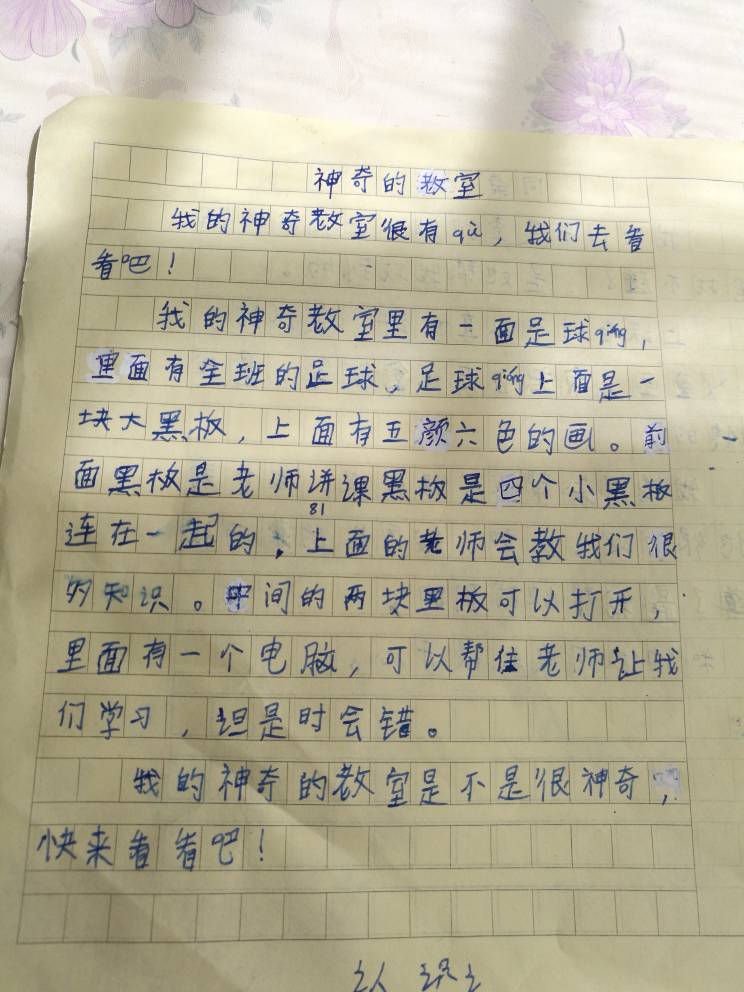 神奇的教室
我的神奇教室很有qù，我们去看
看吧！
我的神奇教室里有一面足球qiáng，
里面有全班的足球，足球qiáng上面是一
块大黑板，上面有五颜六色的画。前
面黑板是老师讲课黑板是四个小黑板
81
连在一起的，上面的老师会教我们很
多知识。中间的两块黑板可以打开，
里面有一个电脑，可以帮住老师让我
们学习，但是时会错。
我的神奇的教室是不是很神奇，
快来看看吧！